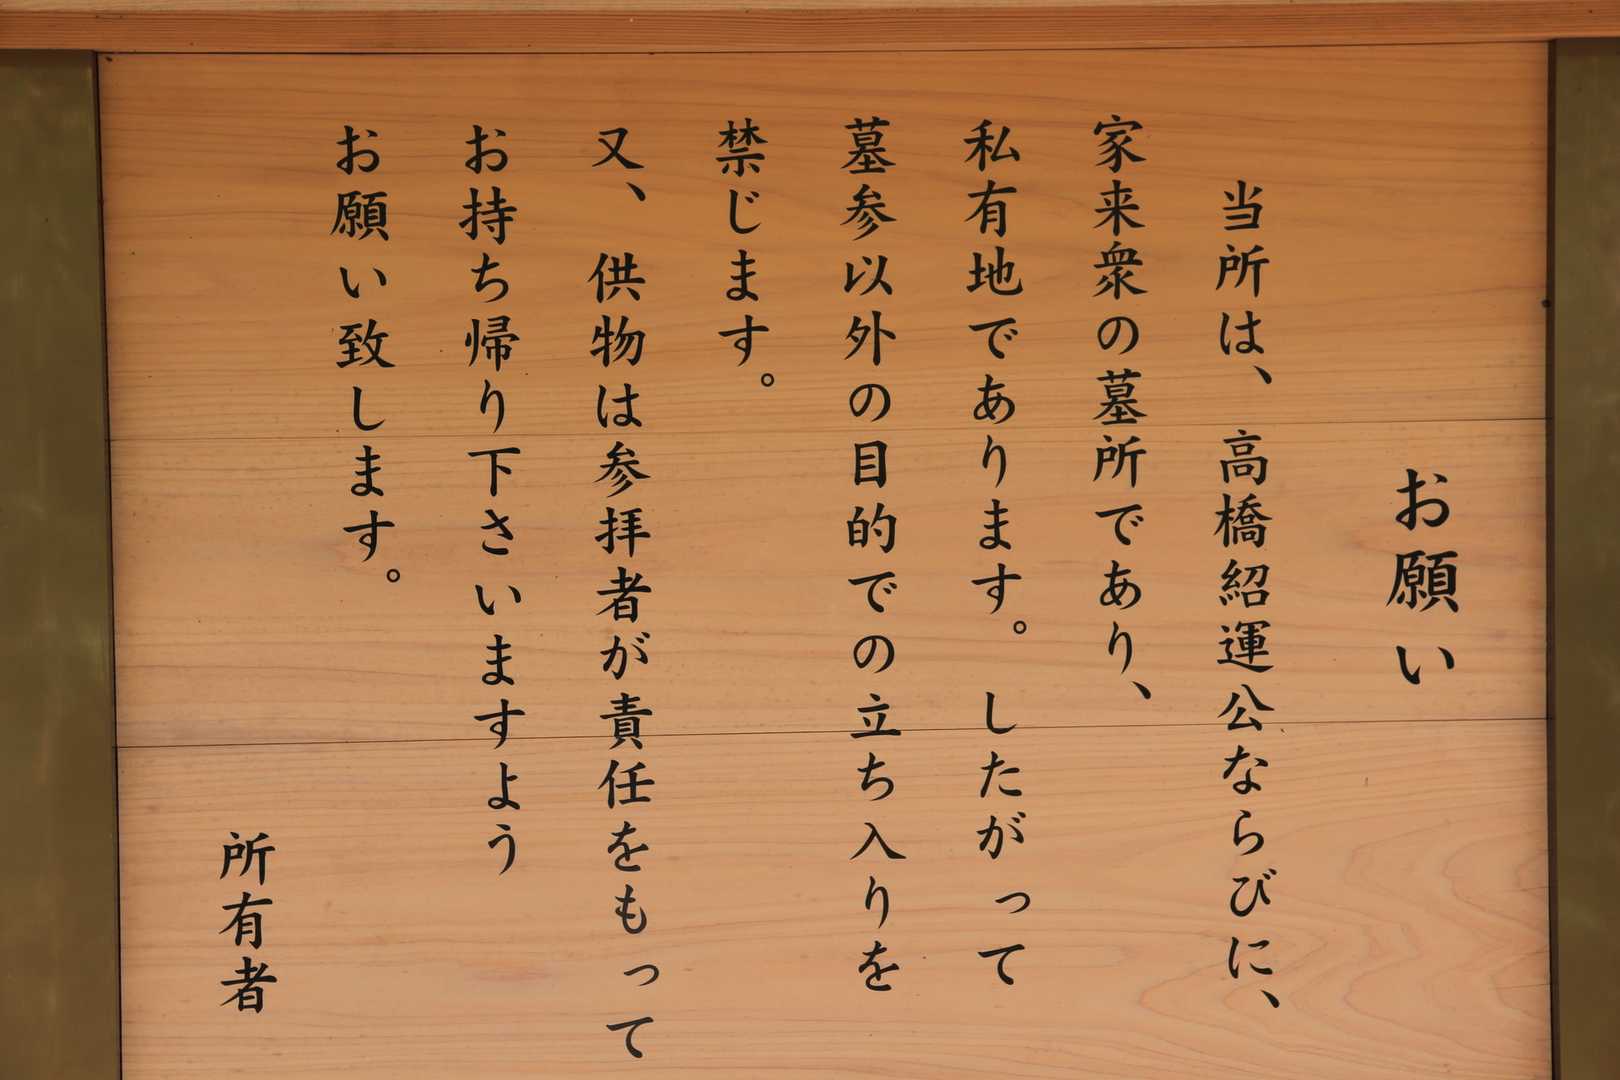 お願い
当所は、高橋紹運公ならびに、
家来衆の墓所であり、
私有地であります。したがって
墓参以外の目的での立ち入りを
禁じます。
又、供物は参拝者が責任をもって
お持ち帰り下さいますよう
お願い致します。
所有者